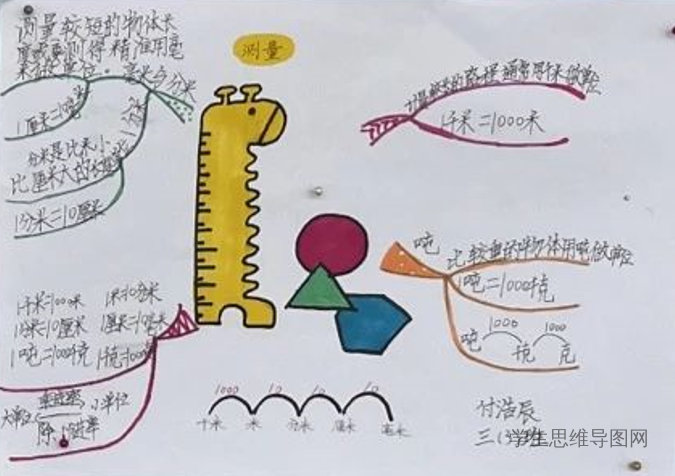 测量较短的物体长
度要测得精准用毫
米做单位。
毫米与分米
1厘米=10毫米
分米是比米小
比厘米大的长度单位
1分米=10厘米
测量
计量较长的路程 通常用千米做单位
1千米=1000米
吨
比较重的物体用吨做单位
1吨=1000千克
吨 1000 千克 1000 克
1千米=1000米 1米=10分米
1分米=10厘米 1厘米=10毫米
1吨=1000千克 1千克=1000克
大单位 乘进率 小单位
除 进率
1000 10 10 10
千米 米 分米 厘米 毫米
付浩辰
三(3)班
学生思维导图网